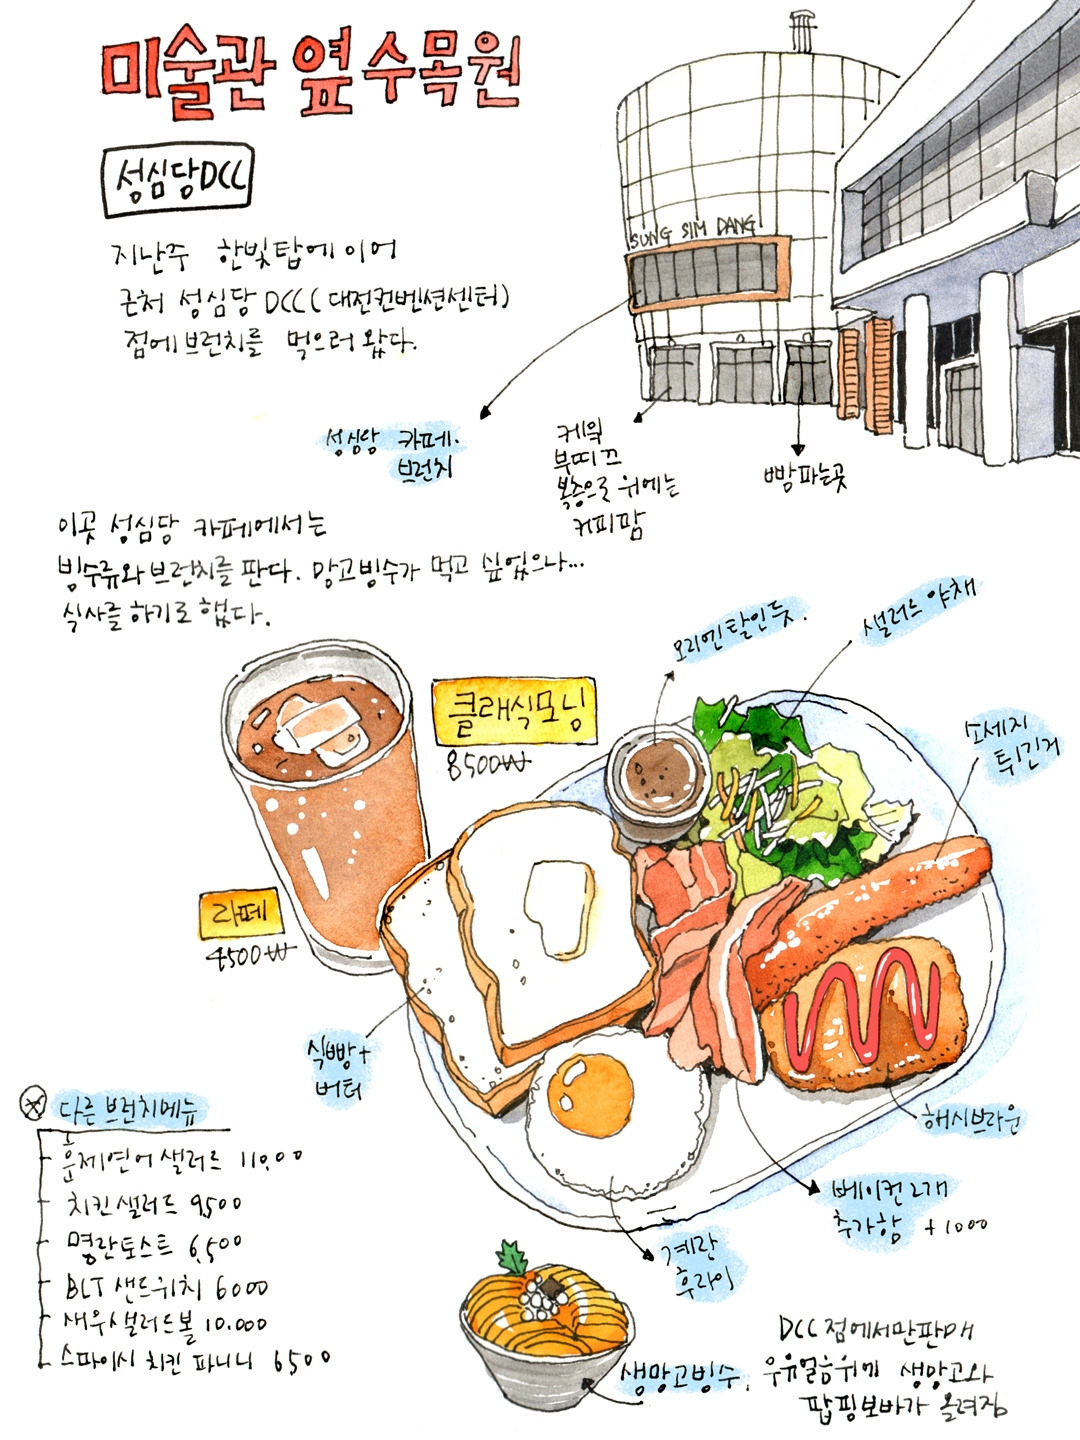 미술관 옆 수목원
성심당DCC
지난주 한빛탑에 이어
근처 성심당 DCC(대전컨벤션센터)
점에 브런치를 먹으러 왔다.
SUNG SIM DANG
성심당 카페.
브런치
케익
부띠끄
복층으로 위에는
커피팜
빵파는곳
이곳 성심당 카페에서는
빙수류와 브런치를 판다. 망고빙수가 먹고 싶었으나...
식사를 하기로 했다.
클래식모닝
8500₩
오리엔탈인듯.
샐러드 야채
소세지
튀긴거
라떼
4500₩
식빵+
버터
해시브라운
베이컨 2개
추가함 +1000
계란
후라이
다른 브런치메뉴
훈제연어 샐러드 11,000
치킨샐러드 9,500
명란토스트 6,500
BLT 샌드위치 6000
새우샐러드볼 10.000
스파이시 치킨 파니니 6500
생망고빙수.
DCC점에서만판매
우유얼음위에 생망고와
팝핑보바가 올려짐